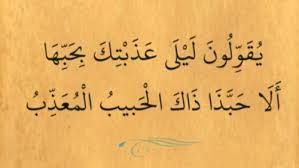 يُقَوِّلُونَ لَيْلَى عَذَبْتِكَ بِحَبِّهَا
أَلَا حَبَّذَا ذَاكَ الْحَبِيبُ الْمُعَذِّبُ